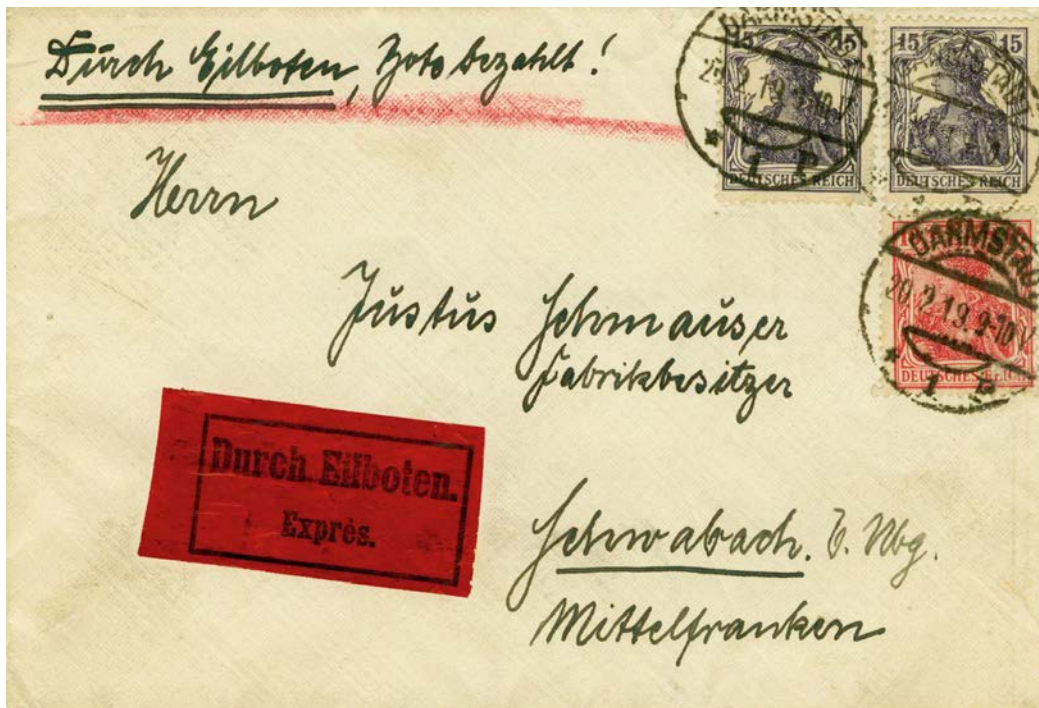 Durch Eilboten, Bote bezahlt!
15 15
DEUTSCHES REICH
15 15
DEUTSCHES REICH
DARMSTADT
20.2.19.9-10V
1 P
DEUTSCHES REICH
Herrn
Justus Schmauser
Fabrikbesitzer
Durch Eilboten.
Exprès.
Schwabach. b. Nbg.
Mittelfranken